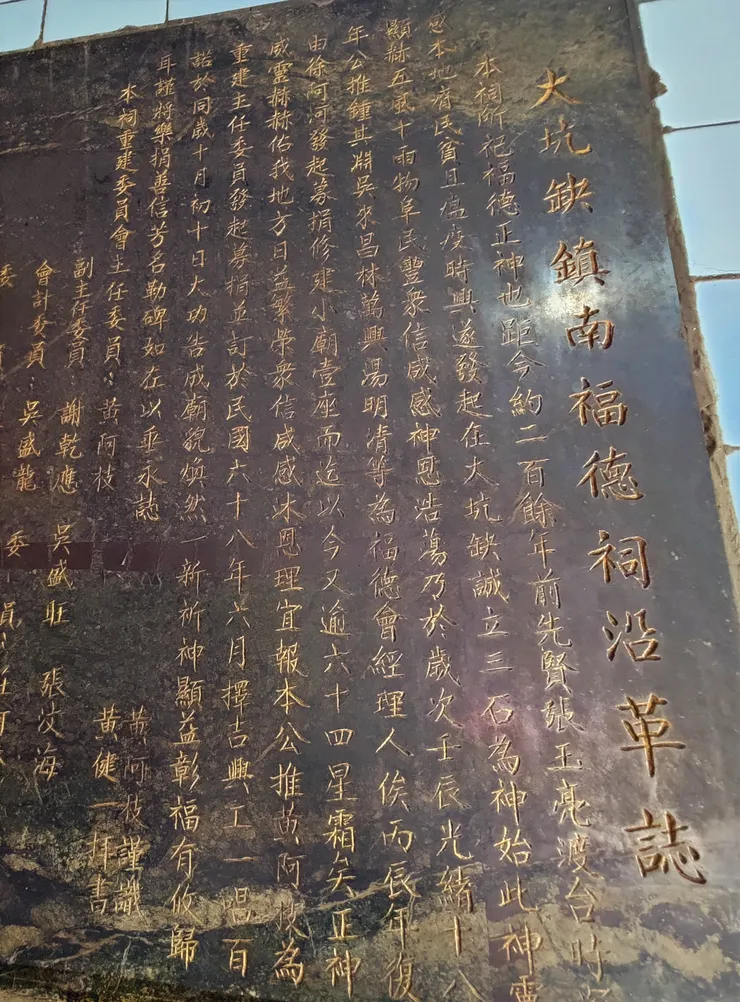 大坑缺鎮南福德祠沿革誌
本祠所祀福德正神也距今約二百餘年前先賢張玉亮渡台時
感本地有民貧且瘟疫時興遂發起在大坑缺誠立三石為神始此神靈
顯赫五風十雨物阜民豐衆信咸感神恩浩蕩乃於歲次壬辰光緒十八
年公推鍾其 吳來昌林萬興湯明清等為福德會經理人俟丙辰年復
由徐阿 發起募捐修建小廟壹座而迄以今又逾六十四星霜矣正神
威靈赫赫佑我地方日益繁榮衆信咸感沐恩理宜報本公推黃阿枝為
重建主任委員發起募捐並訂於民國六十八年六月擇吉興工一唱百
諾於同歲十月初十日大功告成廟貌煥然一新祈神顯益彰福有攸歸
耳謹將樂捐善信芳名勒碑如在以垂永誌
本祠重建委員會主任委員：黃阿枝 黃阿枝謹識
副主任委員：謝乾應 吳盛旺 張 海 黃健一拜書
會計委員：吳盛龍 委員：
委